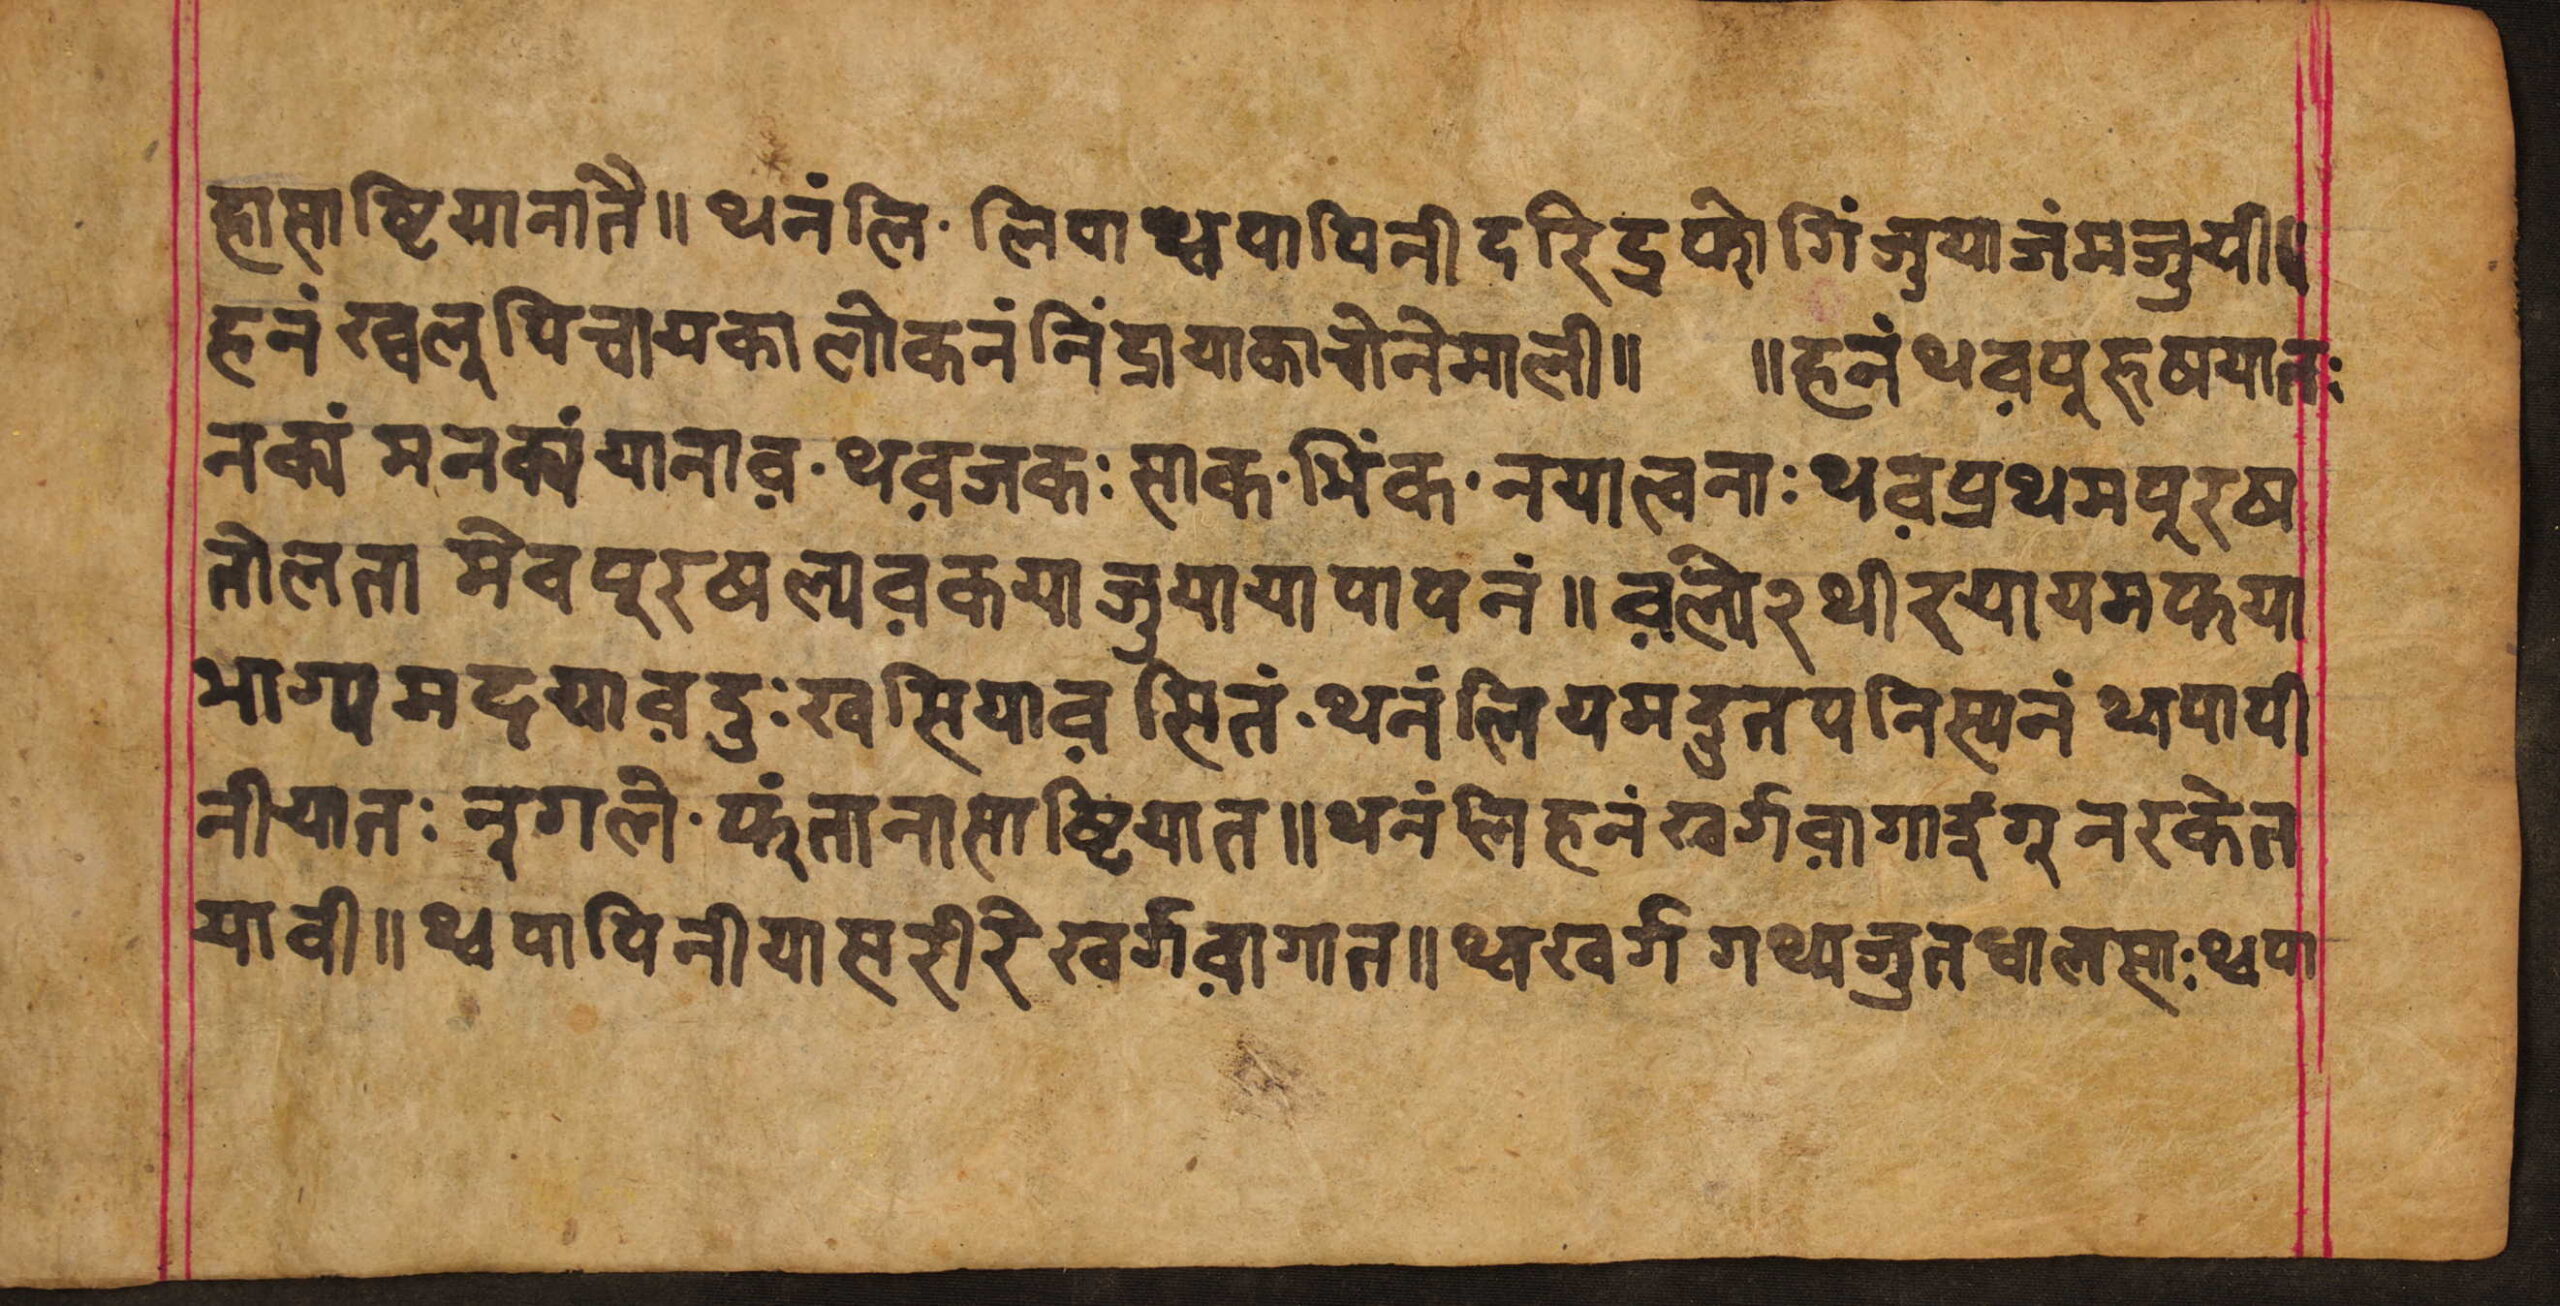 ह्नासाष्टियानातै॥ थनंलि· लिपाथ्वपापिनीदरिद्रफोगिंजुयाजंमजुयी॥
हनं खलुपिच्चायकालोकनं निंद्रायाकाचोनेमाली॥ ॥हनंथव़पुरूषयातः
नक्यं मनक्यंयानाव़·थव़जकः साक·भिंक·नयात्वनाः थव़प्रथमपुरुष
तोलता मेवपुरुषल्यव़कयाजुयायापापनं॥ व़लं२थीरयायमफया
भाग्यमदयाव़दुःखसियाव़सितं·थनंलियमदुतपनिस्यनं थ्वपापी
नीयातः नुगले·फुंतानासाष्टियात॥थनंलिहनंखर्गव़ागाड़ंगुनरकेत
यावी॥थ्वपापिनीयासरीरे खर्गव़ागात॥थ्वखर्ग गथ्यजुतधालसाःथ्वपा